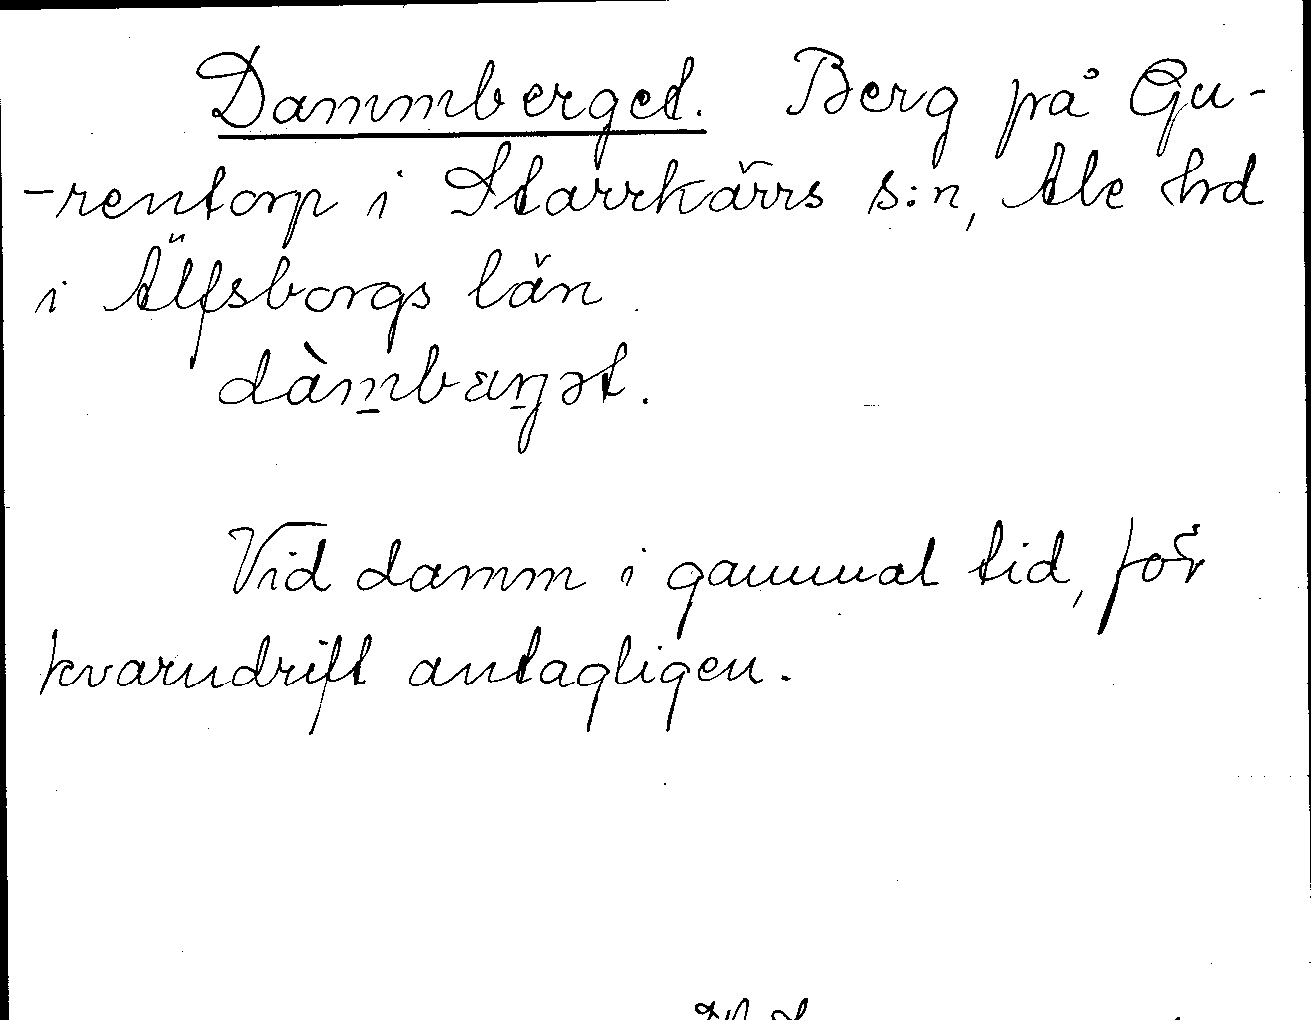 Dammberget. Berg på Gu-
-rentorp i Starrkärrs s:n, Ale hd
i Älfsborgs län
dàmbærjət.
Vid damm i gammal tid, för
kvarndrift antagligen.